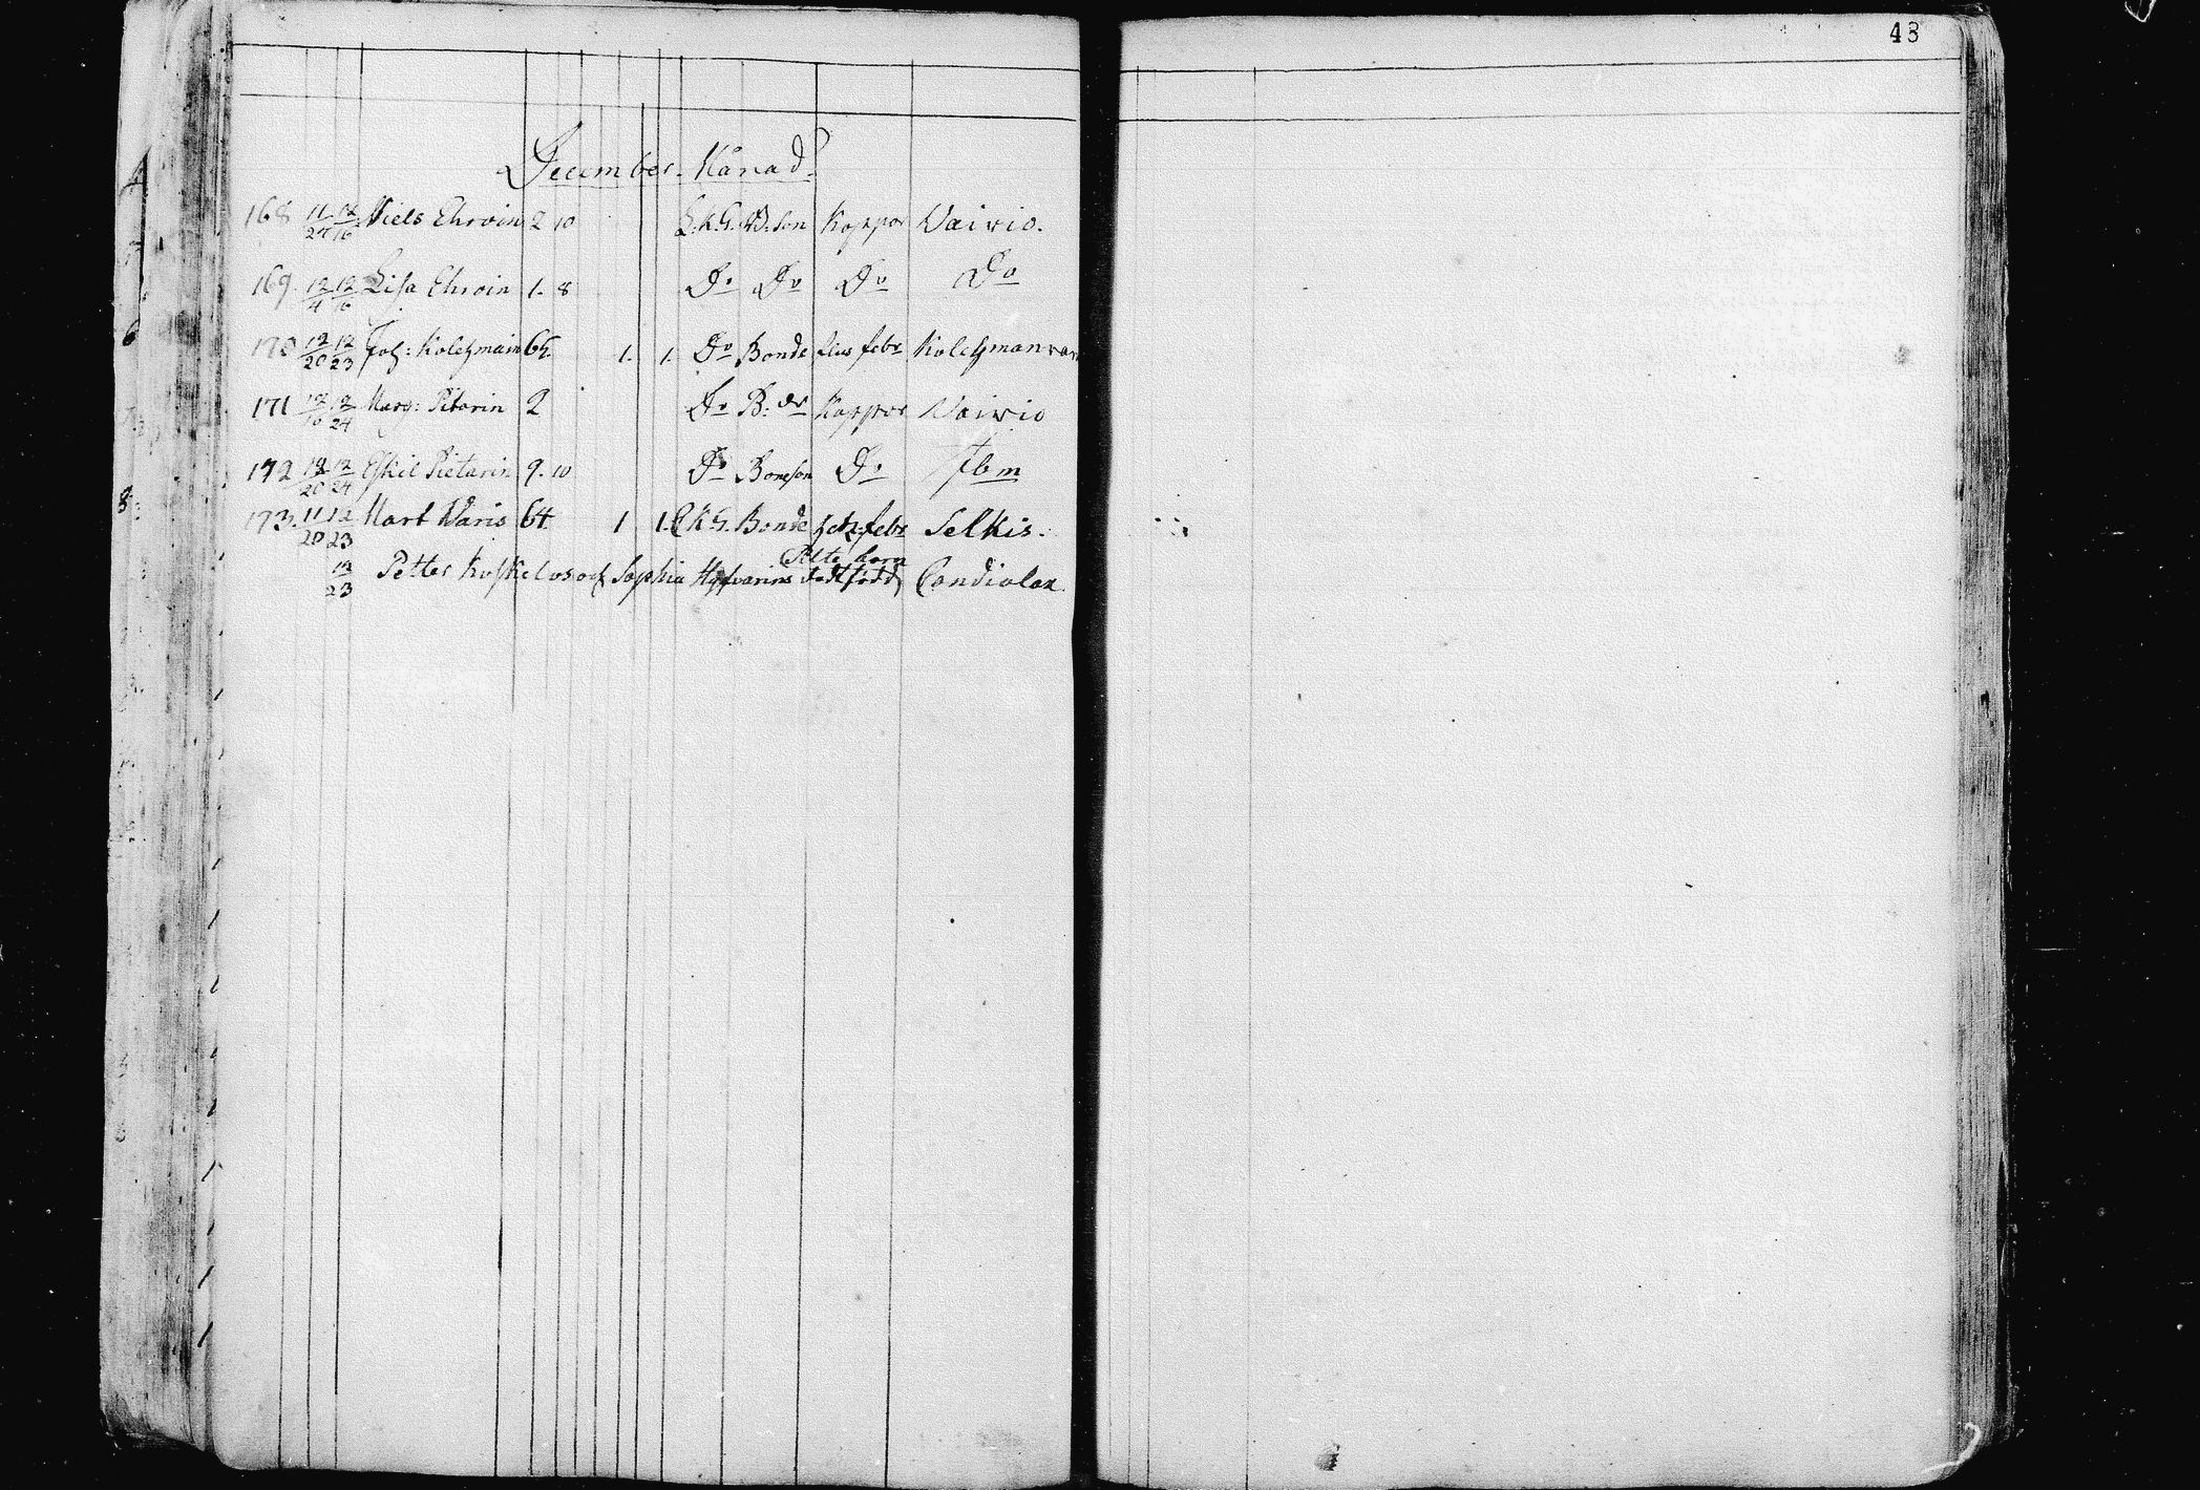 43
December Månad.
168 11/27 12/16 Niels Ehroin 2 10 E.K.G. B.son Koppor Waivio.
169. 12/4 12/16 Lisa Ehroin 1. 8 Do Do Do Do
170 12/20 12/23 Joh: Kolehmain 65. 1. 1. Do Bonde febr Kolehmanvar
171 12/10 12/24 Marg: Pitarin 2 Do B: dr Koppor Waivio
172 12/20 12/24 Eskil Pietarin 9. 10 Do Boneson Do Ibm
173. 11/20 12/23 Mart Waris 64. 1 1. E.K.G. Bonde hetz. febr Selkis.
12/23 Petter och Sophia Hyfvarins dödfödd Contiolax